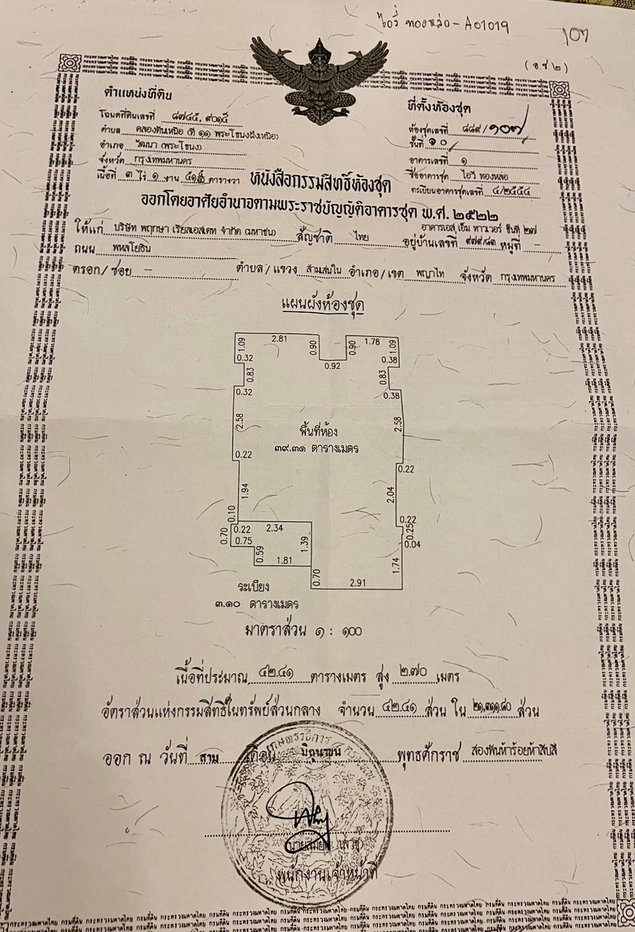 ไอวี่ ทองหล่อ - A01019
107
(อ.ช.๒)
ตำแหน่งที่ดิน
โฉนดที่ดินเลขที่ ๘๗๔๕, ๙๐๑๕
ตำบล คลองตันเหนือ (ที่ ๑๑ พระโขนงฝั่งเหนือ)
อำเภอ วัฒนา (พระโขนง)
จังหวัด กรุงเทพมหานคร
เนื้อที่ ๓ ไร่ ๑ งาน ตารางวา
ที่ตั้งห้องชุด
ห้องชุดเลขที่ ๘๘๙/๑๐๗
ชั้นที่ ๑๐
อาคารเลขที่ ๑
ชื่ออาคารชุด ไอวี่ ทองหล่อ
ทะเบียนอาคารชุดเลขที่ ๔/๒๕๕๔
หนังสือกรรมสิทธิ์ห้องชุด
ออกโดยอาศัยอำนาจตามพระราชบัญญัติอาคารชุด พ.ศ. ๒๕๒๒
ให้แก่ บริษัท พฤกษา เรียลเอสเตท จำกัด (มหาชน) สัญชาติ ไทย อยู่บ้านเลขที่ อาคารเอส เอ็ม ทาวเวอร์ ชั้นที่ ๒๗ ๙๗๙/๘๓ หมู่ที่ -
ถนน พหลโยธิน
ตรอก/ซอย - ตำบล/แขวง สามเสนใน อำเภอ/เขต พญาไท จังหวัด กรุงเทพมหานคร
แผนผังห้องชุด
1.09 2.81 0.90 0.92 0.90 1.78 1.09
0.32 0.38
0.83 0.83
0.32 0.38
2.58 2.58
พื้นที่ห้อง
๓๙.๓๑ ตารางเมตร
0.22 0.22
1.94 2.04
0.10 0.22
0.70 0.22 2.34 0.25
0.75 1.39 0.04
0.59 1.81 1.74
0.70 2.91
ระเบียง
๓.๑๐ ตารางเมตร
มาตราส่วน ๑ : ๑๐๐
เนื้อที่ประมาณ ๔๒.๔๑ ตารางเมตร สูง ๒.๗๐ เมตร
อัตราส่วนแห่งกรรมสิทธิ์ในทรัพย์ส่วนกลาง จำนวน ๔๒.๔๑ ส่วน ใน ส่วน
ออก ณ วันที่ สาม เดือน มิถุนายน พุทธศักราช สองพันห้าร้อยห้าสิบสี่
พนักงานเจ้าหน้าที่